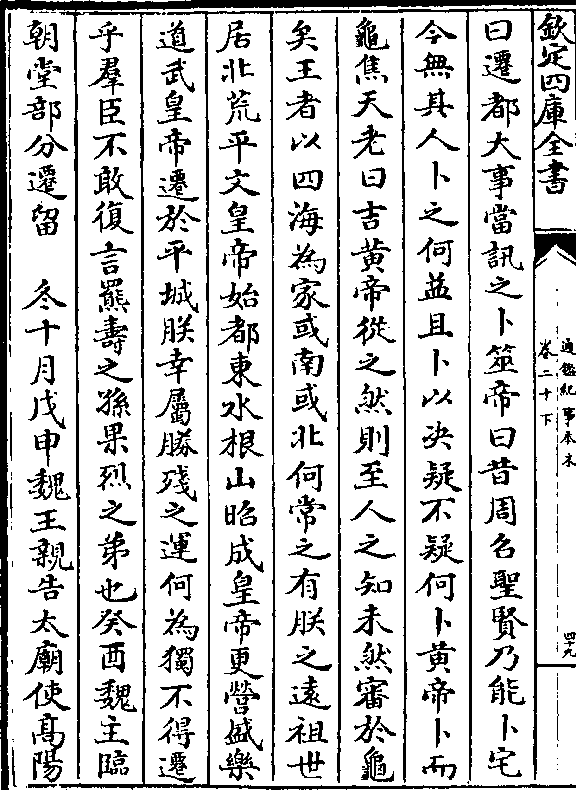 欽定四庫全書
通鑑紀事本末
卷二十下
四十九
曰遷都大事當訊之卜筮帝曰昔周召聖賢乃能卜宅
今無其人卜之何益且卜以决疑不疑何卜黄帝卜而
龜焦天老曰吉黄帝從之然則至人之知未然審於龜
矣王者以四海為家或南或北何常之有朕之遠祖世
居北荒平文皇帝始都東水根山昭成皇帝更營盛樂
道武皇帝遷於平城朕幸屬勝殘之運何為獨不得遷
乎羣臣不敢復言羆壽之孫果烈之弟也癸酉魏主臨
朝堂部分遷留　冬十月戊申魏王親告太廟使高陽